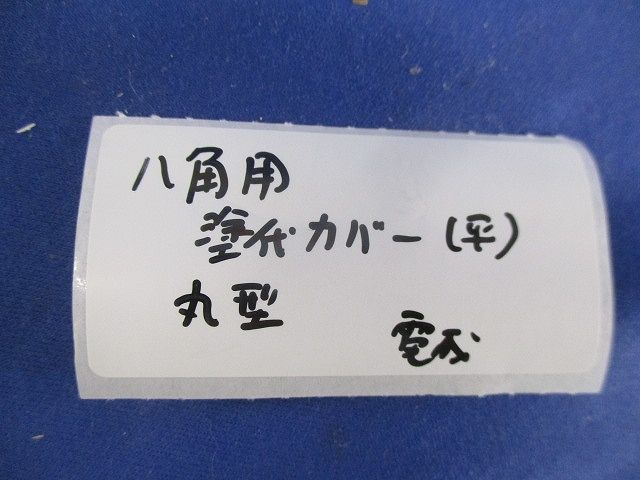 八角用
塗代カバー(平)
丸型